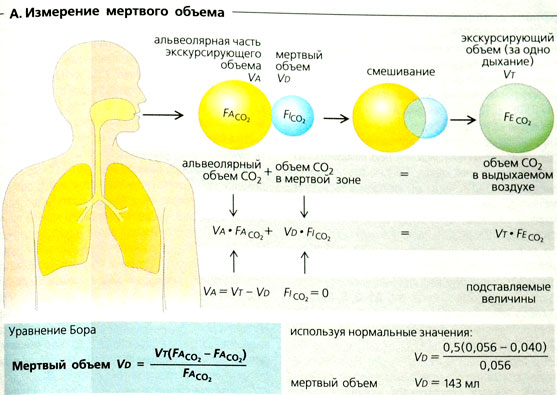 А. Измерение мертвого объема
альвеолярная часть
экскурсирующего
объема
VA
мертвый
объем
VD
смешивание
экскурсирующий
объем (за одно
дыхание)
VT
FACO₂
FICO₂
FECO₂
альвеолярный
объем CO₂
+
объем CO₂
в мертвой зоне
=
объем CO₂
в выдыхаемом
воздухе
VA • FACO₂ + VD • FICO₂ = VT • FECO₂
VA = VT – VD
FICO₂ = 0
подставляемые
величины
Уравнение Бора
Мертвый объем VD = VT(FACO₂ – FACO₂)
FACO₂
используя нормальные значения:
VD = 0,5(0,056 – 0,040)
0,056
мертвый объем VD = 143 мл